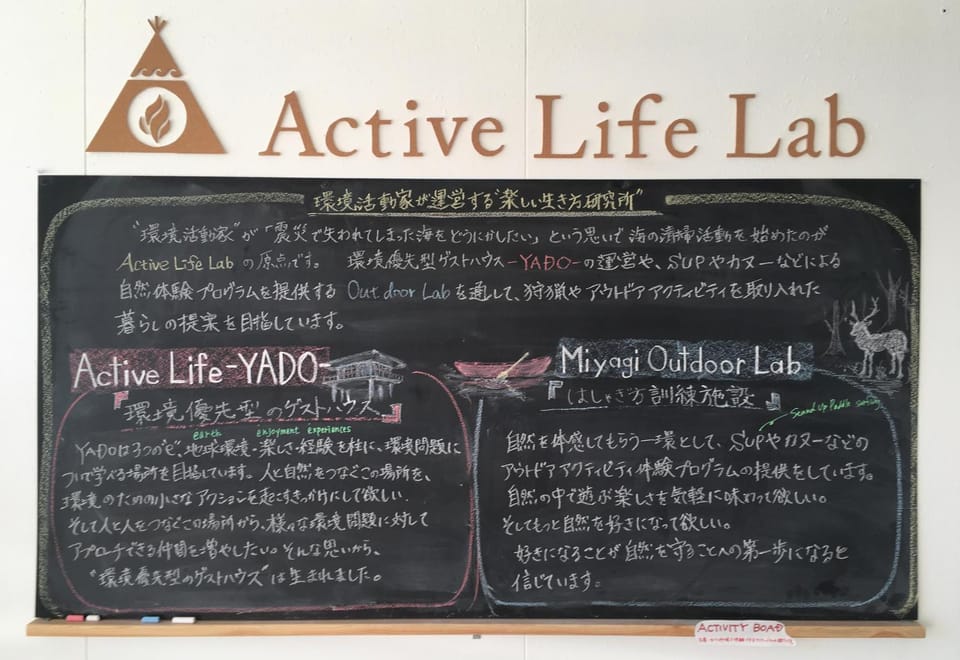 Active Life Lab
環境活動家が運営する"楽しい生き方研究所"
"環境活動家"が「震災で失われてしまった海をどうにかしたい」という思いで海の清掃活動を始めたのが
Active Life Labの原点です。 環境優先型ゲストハウス-YADO-の運営や、SUPやカヌーなどによる
自然体験プログラムを提供するOutdoor Labを通して、狩猟やアウトドアアクティビティを取り入れた
暮らしの提案を目指しています。
Active Life-YADO-
『環境優先型のゲストハウス』
earth enjoyment experiences
YADOは3つの"E"、地球環境・楽しさ・経験を柱に、環境問題に
ついて学べる場所を目指しています。人と自然をつなぐこの場所を、
環境のための小さなアクションを起こすきっかけにして欲しい。
そして人と人をつなぐこの場所から、様々な環境問題に対して
アプローチできる仲間を増やしたい。そんな思いから、
"環境優先型のゲストハウス"は生まれました。
Miyagi Outdoor Lab
『はしゃぎ方訓練施設』
Stand Up Paddle
自然を体感してもらう一環として、SUPやカヌーなどの
アウトドアアクティビティ体験プログラムの提供をしています。
自然の中で遊ぶ楽しさを気軽に味わって欲しい。
そしてもっと自然を好きになって欲しい。
好きになることが自然を守ることへの第一歩になると
信じています。
ACTIVITY BOAD